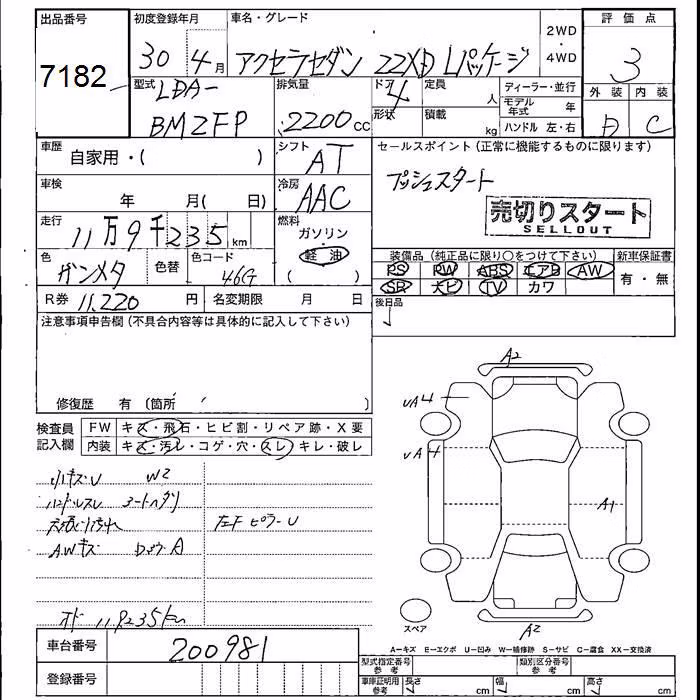 出品番号 初度登録年月 車名・グレード 2WD ・ 4WD 評価点
7182 30年4月 アクセラセダン 22XD Lパッケージ 3
型式 排気量 ドア 定員 ディーラー・並行 外装 内装
LDA- 4 人 モデル年式 年
BMZFP 2200cc 形状 積載 kg ハンドル 左・右 D C
車歴 自家用・( ) シフト AT セールスポイント(正常に機能するものに限ります)
車検 年 月( 日) 冷房 AAC プッシュスタート
売切りスタート
SELLOUT
走行 11万9千235km 燃料 ガソリン 軽油 ( )
装備品(純正品に限り○をつけて下さい) 新車保証書
色 ガンメタ 色替 色コード 46G PS PW ABS エアB AW 有・無
SR ナビ TV カワ
R券 11,220円 名変期限 月 日 後日品
注意事項申告欄(不具合内容等は具体的に記入して下さい)
修復歴 有(箇所 )
検査員記入欄 FW キズ・飛石・ヒビ割・リペア跡・X要
内装 キズ・汚レ・コゲ・穴・スレ・キレ・破レ
小キズU W2
ハンドルスレ シートヘタリ
左F ピラーU
AWキズ A
119235km
A2
UA4
UA4
A1
A2
スペア
車台番号 200981
登録番号
A−キズ E−エクボ U−凹み W−補修跡 S−サビ C−腐食 XX−交換済
型式指定番号 参考 類別区分番号 参考
車庫証明用 参考 長さ cm 幅 cm 高さ cm